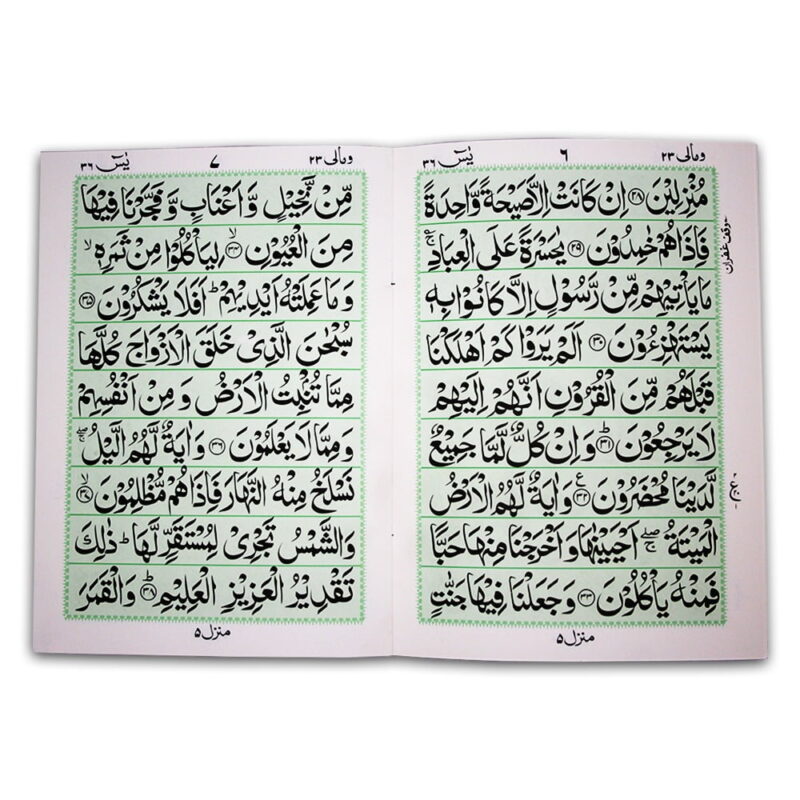 ومالی ٢٣ ٦ يٰسٓ ٣٦
مُنْزِلِيْنَ ﴿٢٨﴾ اِنْ كَانَتْ اِلَّا صَيْحَةً وَّاحِدَةً
فَاِذَا هُمْ خٰمِدُوْنَ ﴿٢٩﴾ يٰحَسْرَةً عَلَى الْعِبَادِ ۚ
مَا يَاْتِيْهِمْ مِّنْ رَّسُوْلٍ اِلَّا كَانُوْا بِهٖ
يَسْتَهْزِءُوْنَ ﴿٣٠﴾ اَلَمْ يَرَوْا كَمْ اَهْلَكْنَا
قَبْلَهُمْ مِّنَ الْقُرُوْنِ اَنَّهُمْ اِلَيْهِمْ
لَا يَرْجِعُوْنَ ﴿٣١﴾ؕ وَاِنْ كُلٌّ لَّمَّا جَمِيْعٌ
لَّدَيْنَا مُحْضَرُوْنَ ﴿٣٢﴾ ع وَاٰيَةٌ لَّهُمُ الْاَرْضُ
الْمَيْتَةُ ۖۚ اَحْيَيْنٰهَا وَاَخْرَجْنَا مِنْهَا حَبًّا
فَمِنْهُ يَاْكُلُوْنَ ﴿٣٣﴾ وَجَعَلْنَا فِيْهَا جَنّٰتٍ
منزل ٥
وقف غفران
ومالی ٢٣ ٧ يٰسٓ ٣٦
مِّنْ نَّخِيْلٍ وَّ اَعْنَابٍ وَّ فَجَّرْنَا فِيْهَا
مِنَ الْعُيُوْنِ ﴿٣٤﴾ۙ لِيَاْكُلُوْا مِنْ ثَمَرِهٖ ۙ
وَمَا عَمِلَتْهُ اَيْدِيْهِمْ ؕ اَفَلَا يَشْكُرُوْنَ ﴿٣٥﴾
سُبْحٰنَ الَّذِيْ خَلَقَ الْاَزْوَاجَ كُلَّهَا
مِمَّا تُنْۢبِتُ الْاَرْضُ وَ مِنْ اَنْفُسِهِمْ
وَمِمَّا لَا يَعْلَمُوْنَ ﴿٣٦﴾ وَاٰيَةٌ لَّهُمُ الَّيْلُ ۖۚ
نَسْلَخُ مِنْهُ النَّهَارَ فَاِذَا هُمْ مُّظْلِمُوْنَ ﴿٣٧﴾ۙ
وَالشَّمْسُ تَجْرِيْ لِمُسْتَقَرٍّ لَّهَا ؕ ذٰلِكَ
تَقْدِيْرُ الْعَزِيْزِ الْعَلِيْمِ ﴿٣٨﴾ؕ وَالْقَمَرَ
منزل ٥